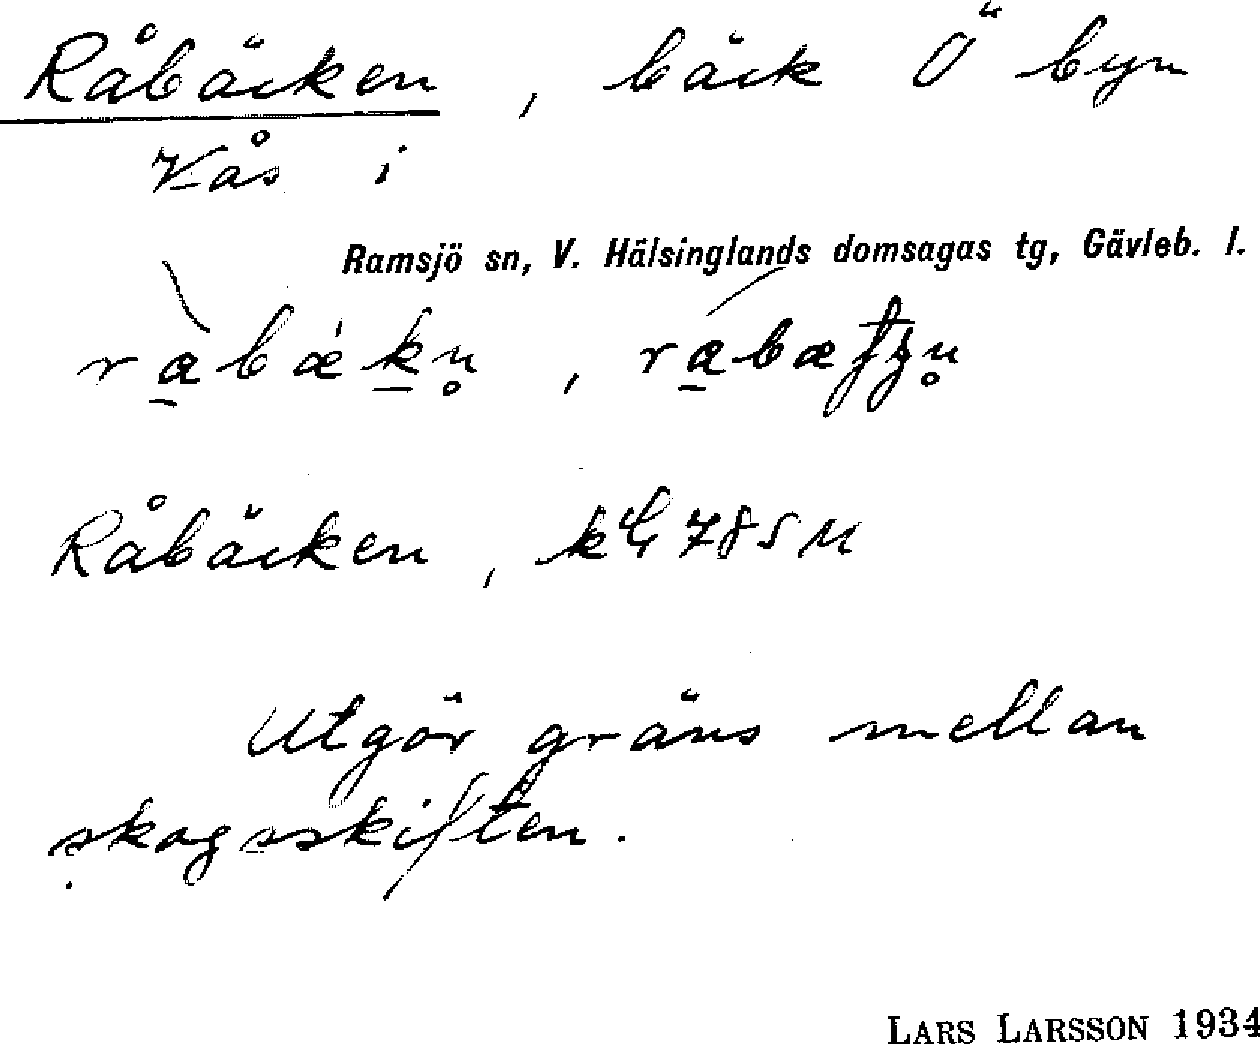 Råbäcken, bäck Ö byn
Kås i
Ramsjö sn, V. Hälsinglands domsagas tg, Gävleb. l.
Råbäcken,
Utgör gräns mellan
skogsskiften.
LARS LARSSON 1934